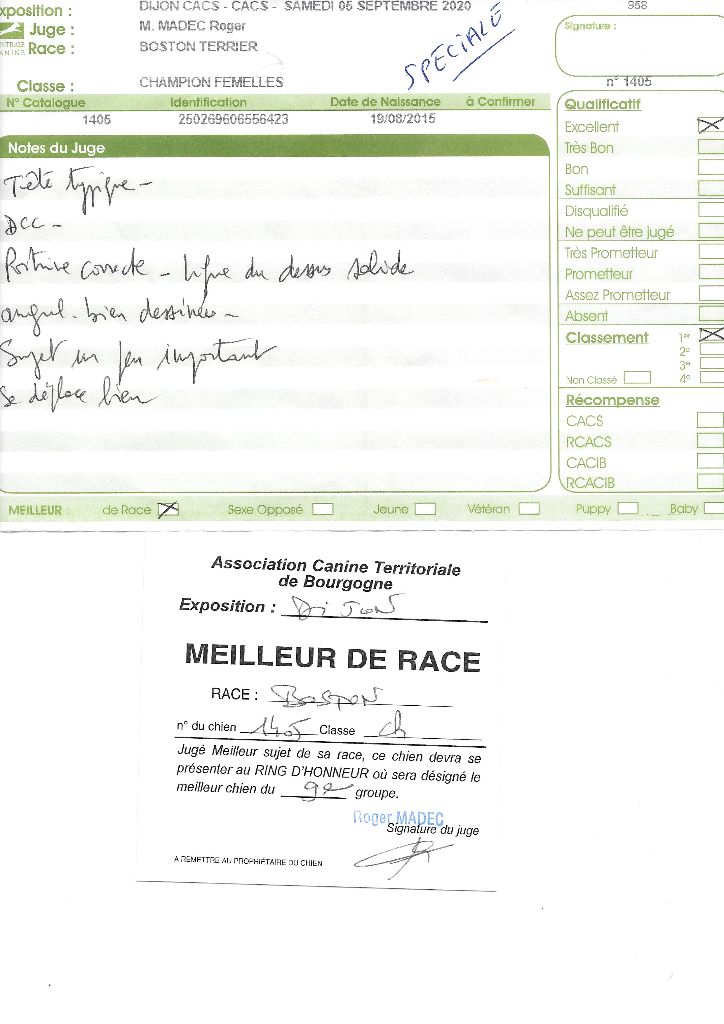 xposition : DIJON CACS - CACS - SAMEDI 05 SEPTEMBRE 2020 958
Juge : M. MADEC Roger
Race : BOSTON TERRIER
SPÉCIALE
Signature :
Classe : CHAMPION FEMELLES
n° 1405
N° Catalogue Identification Date de Naissance à Confirmer
1405 250269606556423 19/08/2015
Notes du Juge
Tête typique -
DCC -
Poitrine correcte - ligne du dessus solide
angul. bien dessinées -
Sujet un peu important
Se déplace bien
Qualificatif
Excellent
Très Bon
Bon
Suffisant
Disqualifié
Ne peut être jugé
Très Prometteur
Prometteur
Assez Prometteur
Absent
Classement 1er
2e
3e
Non Classé 4e
Récompense
CACS
RCACS
CACIB
RCACIB
MEILLEUR : de Race Sexe Opposé Jeune Vétéran Puppy Baby
Association Canine Territoriale
de Bourgogne
Exposition : DiJON
MEILLEUR DE RACE
RACE : BOSTON
n° du chien 1405 Classe Ch
Jugé Meilleur sujet de sa race, ce chien devra se
présenter au RING D'HONNEUR où sera désigné le
meilleur chien du 9e groupe.
Roger MADEC
Signature du juge
A REMETTRE AU PROPRIÉTAIRE DU CHIEN